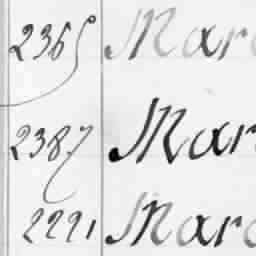 2365 Mar
2387 Mar
2291 Mar